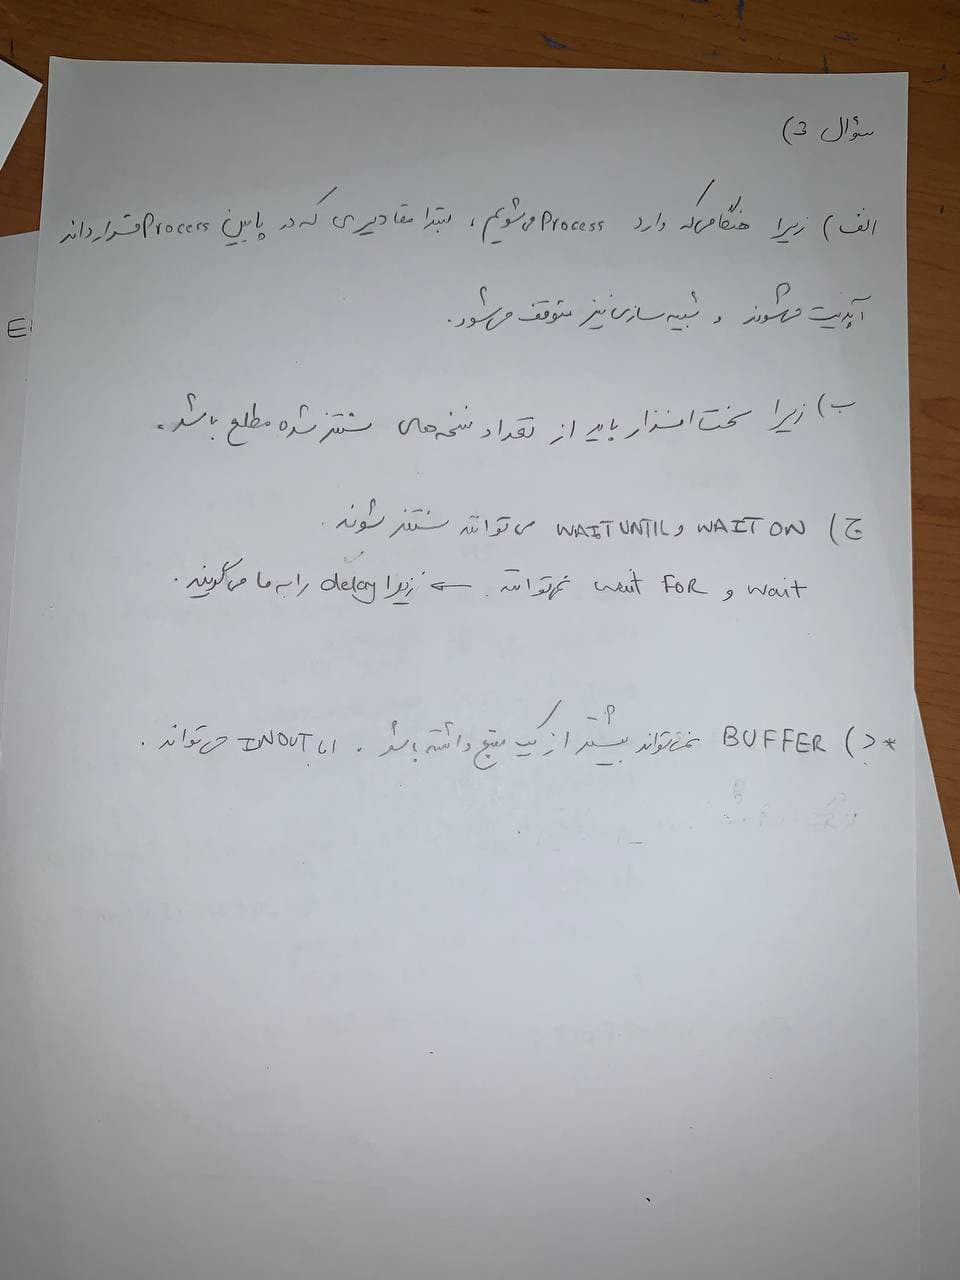 سؤال 3)
الف) زیرا هنگامی که وارد Process می‌شویم، ابتدا مقادیری که در پایین Process قرار دارند
آپدیت می‌شوند و شبیه سازی نیز متوقف می‌شود.
ب) زیرا سخت افزار باید از تعداد نسخه‌های سنتز شده مطلع باشد.
ج) WAIT ON و WAIT UNTIL می‌توانند سنتز شوند.
wait و wait FOR نمی‌توانند. ← زیرا delay را به ما می‌گویند.
* د) BUFFER نمی‌تواند بیشتر از یک منبع داشته باشد. اما INOUT می‌تواند.